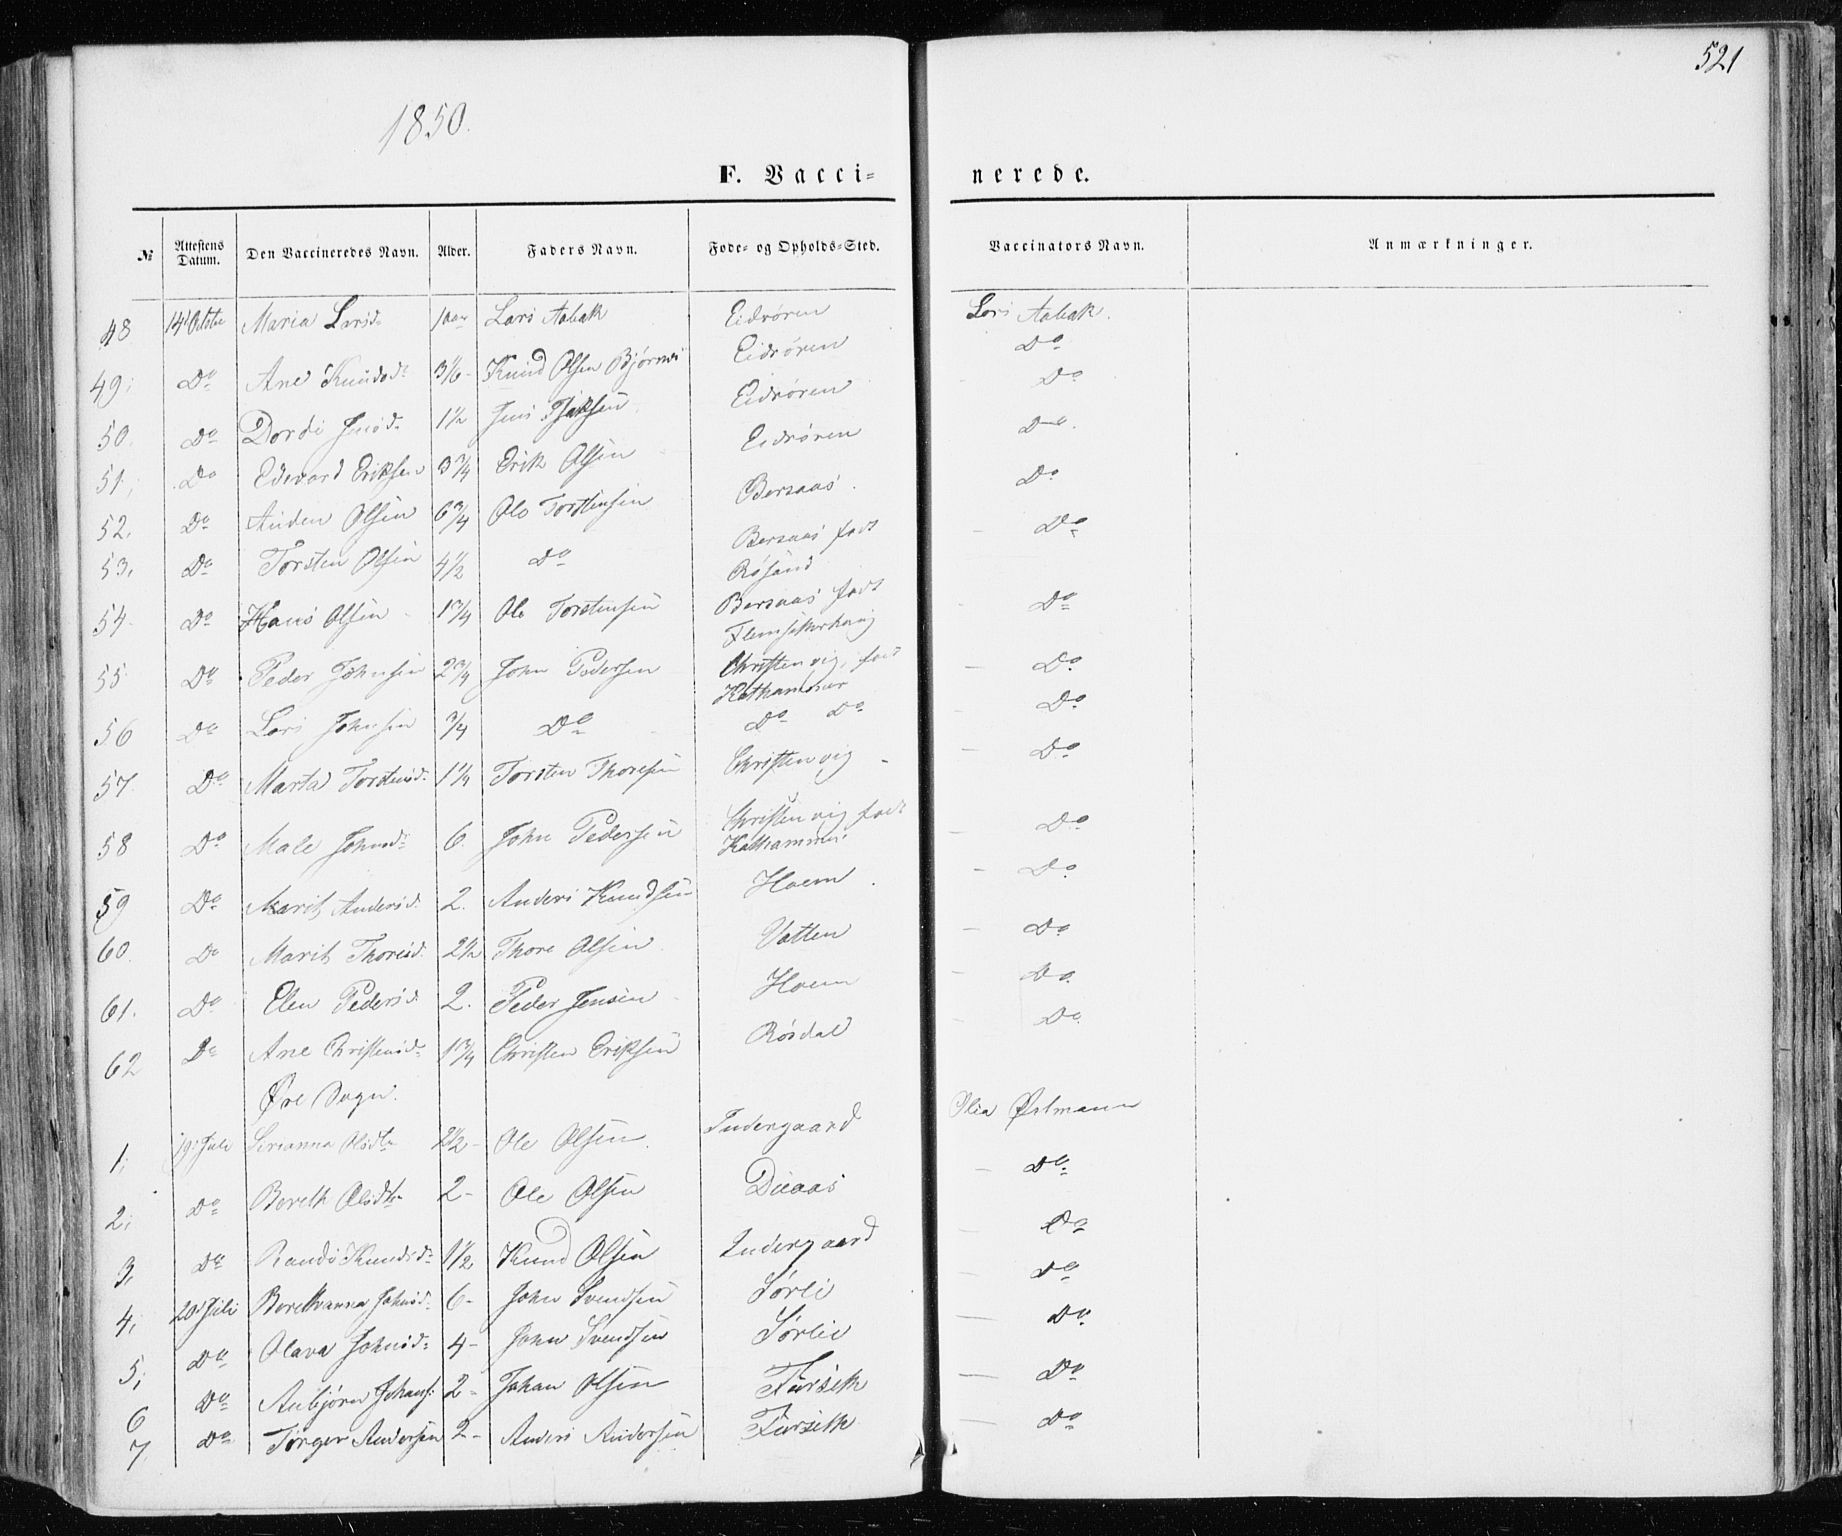 521
1850.
F. Vacci= nerede.
№ Attestens Datum. Den Vaccineredes Navn. Alder. Faders Navn. Føde- og Opholds-Sted. Vaccinators Navn. Anmærkninger.
48 14 Octbr Maria Larsd. 1 aar Lars Aabak Eidsören Lars Aabak.
49; Do Ane Knudsd. 3 1/6 - Knud Olsen Bjørnæs Eidsören Do
50. Do Dordi Jensd. 1 1/2 Jens Eidsören Do
51; Do Edevard Eriksen 3 3/4 Erik Olsen Eidsören Do.
52, Do Anden Olsen 6 3/4 Ole Torstensen Bersaas. Do
53, Do Torsten Olsen 4 1/2 Do Bersaas født Røsand Do
54. Do Hans Olsen 1 3/4 Ole Torstensen Bersaas født Do
55 Do Peder Johnsen 2 3/4 John Pedersen Christenvig, født Kathammer Do
56 Do Lars Johnsen 3/4 Do Do Do Do
57. Do Marta Torstensd. 1 1/4 Torsten Thoresen Christenvig - Do
58 Do Male Johnsd. 6. John Pedersen Christenvig født Kathammer Do
59 Do Marit Andersd. 2. Anders Knudsen Hoem. Do
60. Do Marit Thoresd. 2 1/2 Thore Olsen Vatten Do
61. Do Elen Pedersd. 2. Peder Jensen Hoem Do
62 Do Ane Christensd. 1 3/4 Christen Eriksen Røsdal Do
Øre Sogn.
1; 19 Juli Serianna Olsdtr 2 1/2 - Ole Olsen. Indergaard Olia Østmann
2; Do Bereth Olsdtr 2 - Ole Olsen Duaas Do
3, Do Randi Knudsd. 1 1/2 Knud Olsen Indergaard Do
4; 20 Juli Berethanna Johnsd. 6 - John Svendsen Sørli Do
5; Do Olava Johnsd. 4 - John Svendsen Sørlie Do
6 Do Anbjørn Johans. 2 - Johan Olsen Furseth Do
7, Do Torger Andersen 2 - Anders Andersen Furseth Do